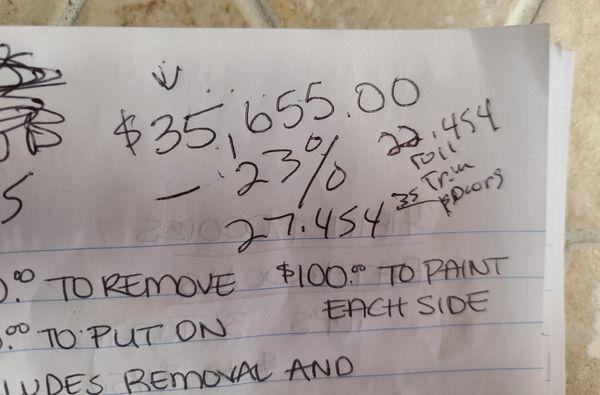 $35,655.00
- 23%
27.454
22.454
Trim
35 Doors
S
0.00 TO REMOVE $100.00 TO PAINT
EACH SIDE
.00 TO PUT ON
LUDES REMOVAL AND